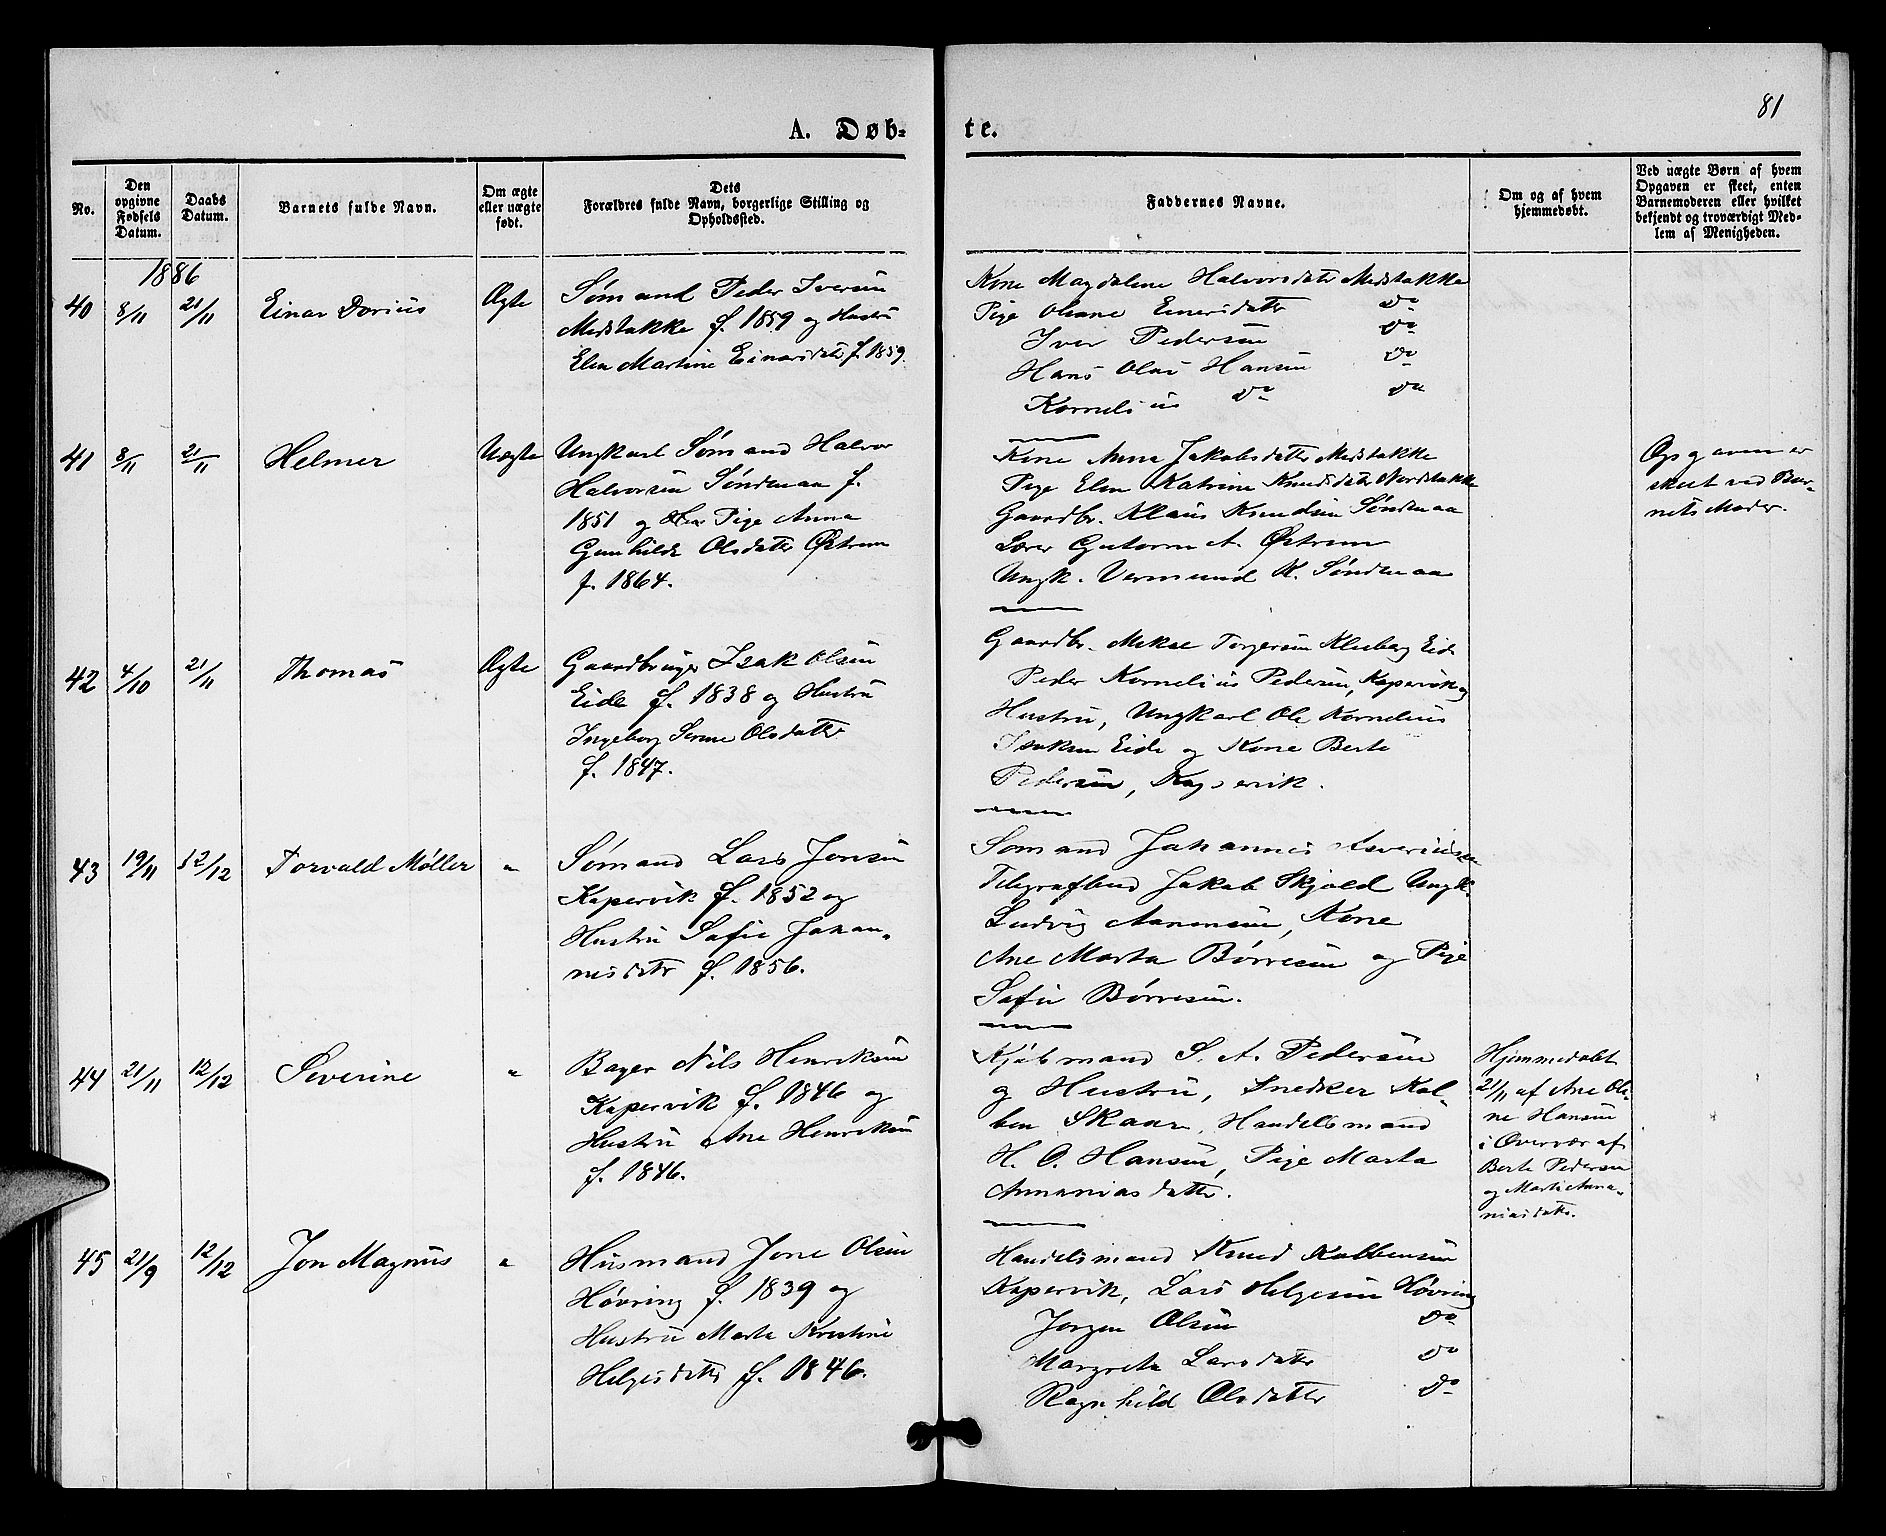 81
A. Døb-
te.
No.
Den opgivne Fødsels Datum.
Daabs Datum.
Barnets fulde Navn.
Om ægte eller uægte født.
Dets Forældres fulde Navn, borgerlige Stilling og Opholdssted.
Faddernes Navne.
Om og af hvem hjemmedøbt.
Ved uægte Børn af hvem Opgaven er skeet, enten Barnemoderen eller hvilket bekjendt og troværdigt Medlem af Menigheden.
1886
40 8/11 21/11 Einar Dorius Ægte
Sømand Peder Iversen
Medstokke f. 1859 og Hustru
Elen Martine Einarsdatr f. 1859.
Kone Magdalene Halvorsdatr Medstokke
Pige Oleane Einersdatter do
Iver Pedersen do
Hans Olai Hansen do
Kornelius do do
41 8/11 21/11 Helmer Uægte
Ungkarl Sømand Halvor
Halvorsen Søndenaa f.
1851 og Pige Anna
Gunhilde Olsdatter Østrem
f. 1864.
Kone Anna Jakobsdatter Medstokke
Pige Elen Katrine Knudsdatr Nordstokke
Gaardbr. Klaus Knudsen Søndenaa
Lærer Gutorm A. Østrem
Ungk. Vermund K. Søndenaa
Opgaven er
skeet ved Bar-
nets Moder.
42 4/10 21/11 Thomas Ægte
Gaardbruger Isak Olsen
Eide f. 1838 og Hustru
Ingeborg Serine Olsdatter
f. 1847.
Gaardbr. Mikal Torgersen Eide
Peder Kornelius Pedersen, Kopervik og
Hustru, Ungkarl Ole Kornelius
Isaksen Eide og Kone Berte
Pedersen, Kopervik.
43 19/11 12/12 Torvald Møller "
Sømand Lars Jonsen
Kopervik f. 1852 og
Hustru Sofie Johan-
nesdatr f. 1856.
Sømand Johannes Severinsen
Telegrafbud Jakob Skjold Ungk.
Ludvig Aanensen, Kone
Ane Marta Børresen og Pige
Sofie Børresen.
44 21/11 12/12 Severine "
Bager Nils Henriksen
Kopervik f. 1846 og
Hustru Ane Henriksen
f. 1846.
Kjøbmand S. A. Pedersen
og Hustru, Snedker Kol-
ben Skaar, Handelsmand
H. O. Hansen, Pige Marta
Annaniasdatter.
Hjemmedøbt
21/11 af Ane Ole-
ne Hansen
i Overvær af
Berte Pedersen
og Marta Anna-
niasdatter.
45 21/9 12/12 Jon Magnus "
Husmand Jone Olsen
Høvring f. 1839 og
Hustru Marta Kristine
Helgesdatter f. 1846.
Handelsmand Knud Kolbensen
Kopervik, Lars Helgesen Høvring
Jørgen Olsen do
Margreta Larsdatter do
Ragnhild Olsdatter do